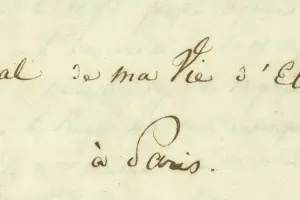 al de ma Vie d'Et
à Paris.